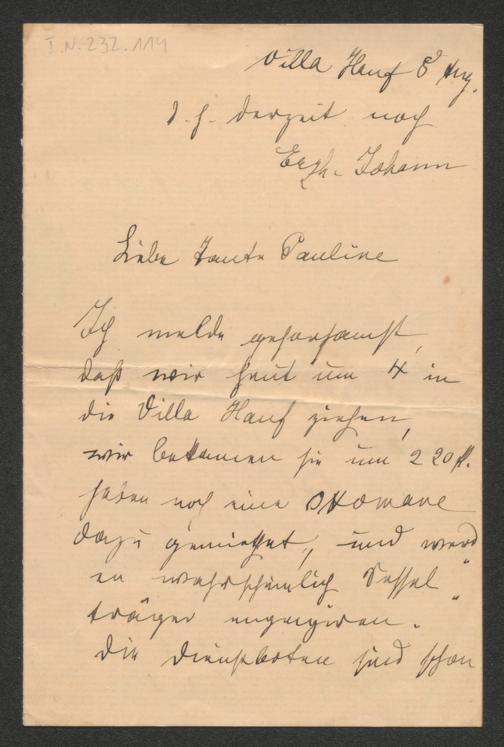 I.N. 232.114
Villa Hauf 8t Aug.
d. h. derzeit noch
Erzh. Johann
Liebe Tante Pauline
Ich melde gehorsamst,
daß wir heut um 4 in
die Villa Hauf ziehen,
wir bekamen sie um 220 fl.
haben noch eine Ottomane
dazu gemiethet, und werd
en wahrscheinlich Sessel
träger engagiren.
Die Dienstboten sind schon